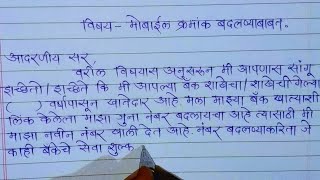 विषय - मोबाईल क्रमांक बदलण्याबाबत..
आदरणीय सर,
वरील विषयास अनुसरून मी आपणास सांगू
इच्छितो / इच्छिते कि मी आपल्या बँक शाखेचा / शाखेची गेल्या
( ) वर्षापासून खातेदार आहे. मला माझ्या बँक खात्याशी
लिंक केलेला माझा जुना नंबर बदलायचा आहे त्यासाठी मी
माझा नवीन नंबर खाली देत आहे. नंबर बदलण्याकरिता जे
काही बँकेचे सेवा शुल्क